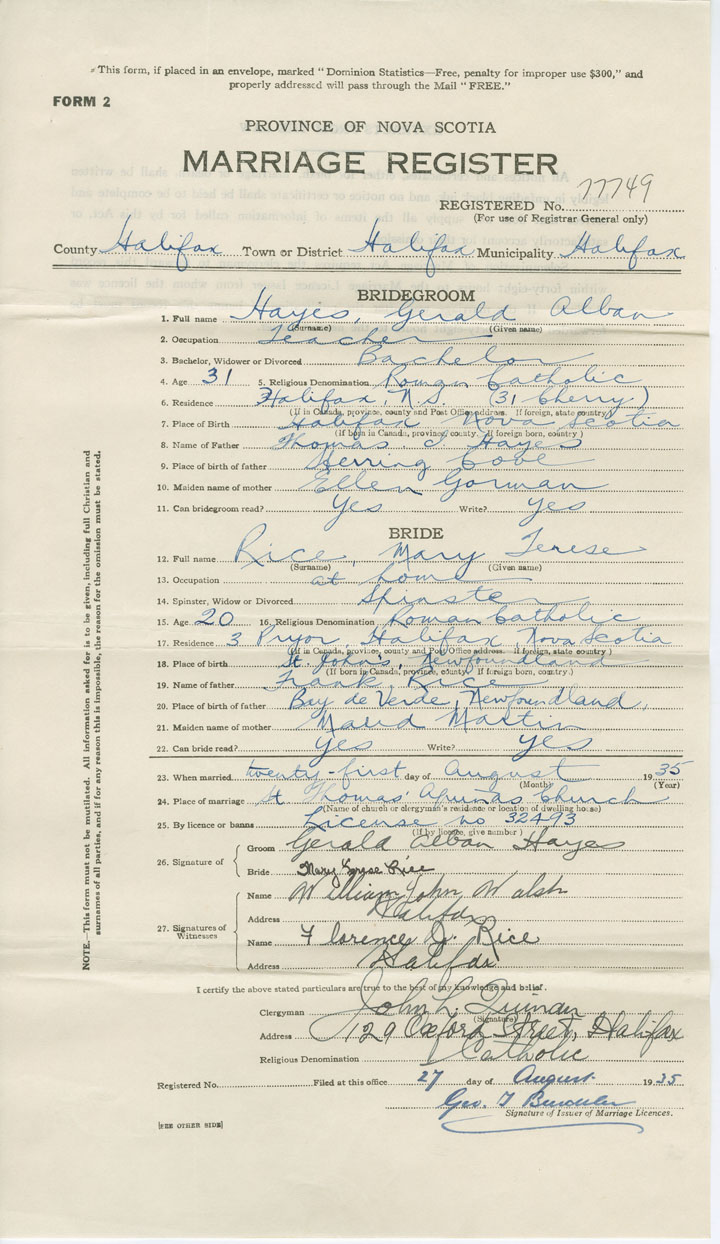 *This form, if placed in an envelope, marked "Dominion Statistics—Free, penalty for improper use $300," and
properly addressed will pass through the Mail "FREE."
FORM 2
PROVINCE OF NOVA SCOTIA
MARRIAGE REGISTER
REGISTERED No. 77749
(For use of Registrar General only)
County Halifax Town or District Halifax Municipality Halifax
BRIDEGROOM
1. Full name Hayes, Gerald Alban
(Surname) (Given name)
2. Occupation Teacher
3. Bachelor, Widower or Divorced Bachelor
4. Age 31 5. Religious Denomination Roman Catholic
6. Residence Halifax, N.S. (31 Cherry)
(If in Canada, province, county and Post Office address. If foreign, state country)
7. Place of Birth Halifax Nova Scotia
(If born in Canada, province, county. If foreign born, country)
8. Name of Father Thomas J Hayes
9. Place of birth of father Herring Cove
10. Maiden name of mother Ellen Gorman
11. Can bridegroom read? Yes Write? Yes
BRIDE
12. Full name Rice, Mary Terese
(Surname) (Given name)
13. Occupation at home
14. Spinster, Widow or Divorced Spinster
15. Age 20 16. Religious Denomination Roman Catholic
17. Residence 3 Pryor, Halifax, Nova Scotia
(If in Canada, province, county and Post Office address. If foreign, state country)
18. Place of birth St. John's, Newfoundland
(If born in Canada, province, county. If foreign born, country.)
19. Name of father Frank Rice
20. Place of birth of father Bay de Verde, Newfoundland,
21. Maiden name of mother Maud Martin
22. Can bride read? Yes Write? Yes
23. When married twenty-first day of August 1935
(Month) (Year)
24. Place of marriage St Thomas' Aquinas Church
(Name of church or clergyman's residence or location of dwelling house)
25. By licence or banns License no 32493
(If by licence, give number)
26. Signature of Groom Gerald Alban Hayes
Bride Mary Rice
27. Signatures of Witnesses Name William John Walsh
Address Halifax
Name Florence J. Rice
Address Halifax
I certify the above stated particulars are true to the best of my knowledge and belief.
Clergyman John L. Quinan
(Signature)
Address 129 Oxford Street, Halifax
Religious Denomination Catholic
Registered No. Filed at this office 27 day of August 1935
Geo. T
Signature of Issuer of Marriage Licences.
[SEE OTHER SIDE]
NOTE.—This form must not be mutilated. All information asked for is to be given, including full Christian and
surnames of all parties, and if for any reason this is impossible, the reason for the omission must be stated.